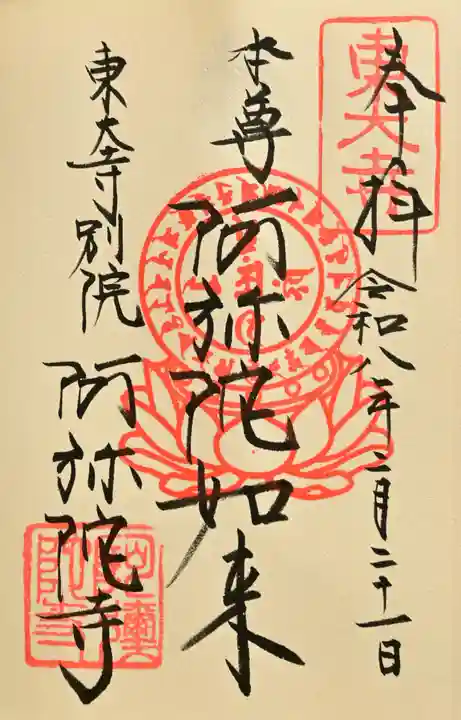 奉拝
令和八年二月二十一日
本尊
阿弥陀如来
東大寺別院
阿弥陀寺
東大寺
阿彌陀寺